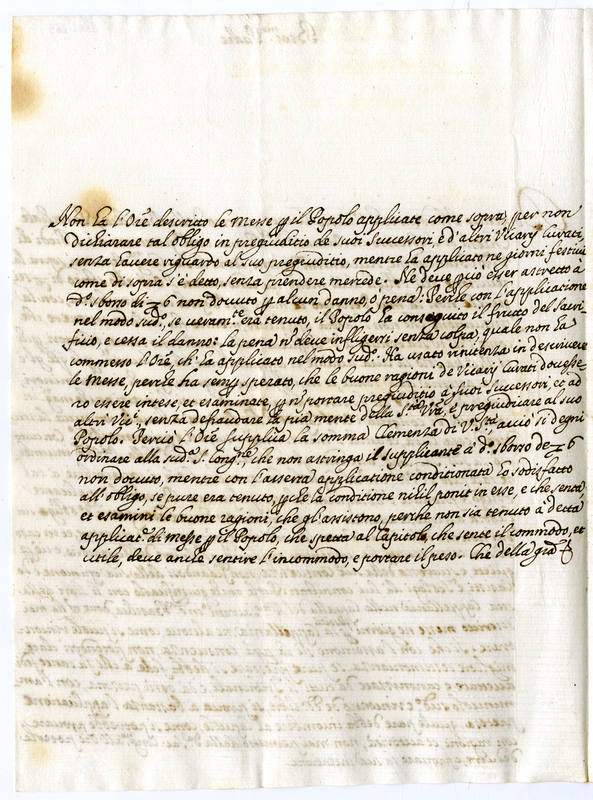 Non ha l'Ore descritto le messe p il Popolo applicate come sopra, per non
dichiarare tal obligo in pregiuditio de suoi Successori, e d'altri Vicarij Curati,
senza havere riguardo al suo pregiuditio, mentre ha applicato ne giorni festivi
come di sopra s'è detto, senza prendere mercede. Ne deve p ciò esser astretto a
do sborso di 6 non dovuto p alcun danno, o pena: Perche con l'applicatione
nel modo sudo, se veramte era tenuto, il Popolo ha conseguito il frutto del sacri-
ficio, e cessa il danno: la pena no deve infligersi senza colpa, quale non ha
commesso l'Ore ch'ha applicato nel modo sudo. Ha usato in descrivere
le messe, perche ha sempre sperato, che le buone ragioni de Vicarij Curati dovesse-
ro essere intese, et esaminate, p no portare pregiuditio a suoi Successori, et ad
altri Vic, senza defraudare la pia mente della Sta Vra, e pregiudicare al suo
Popolo. Perciò l'Ore supplica la somma Clemenza di V. Sta acciò si degni
ordinare alla suda S. Congne, che non astringa il supplicante a do sborso de 6
non dovuto, mentre con l'asserta applicatione conditionata ha sodisfatto
all'obligo, se pure era tenuto, p che la conditione nihil ponit in esse, e che senta,
et esamini le buone ragioni, che gl'assistono, perche non sia tenuto a detta
applicat. di messe p il Popolo, che spetta al Capitolo, che sente il commodo, et
utile, deve anche sentire l'incommodo, e portare il peso. Che della gra